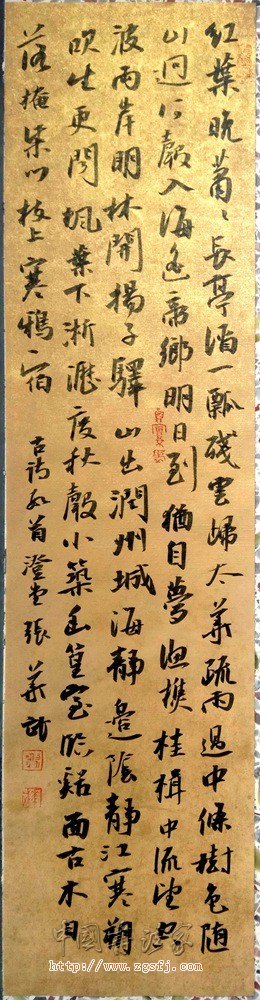 红葉晚蕭〻長亭酒一瓢殘雲歸太華疏雨過中條樹色随
山迥河聲入海遙帝鄉明日到猶自夢漁樵桂楫中流望空
波兩岸明林開揚子驛山出潤州城海静邊陰静江寒朔
吹生更聞楓葉下淅瀝度秋聲小築幽篁臨谿面古木日
落掩柴門枝上寒鴉宿
古詩首澄張華
中國書法家
http://www.zgsfj.com